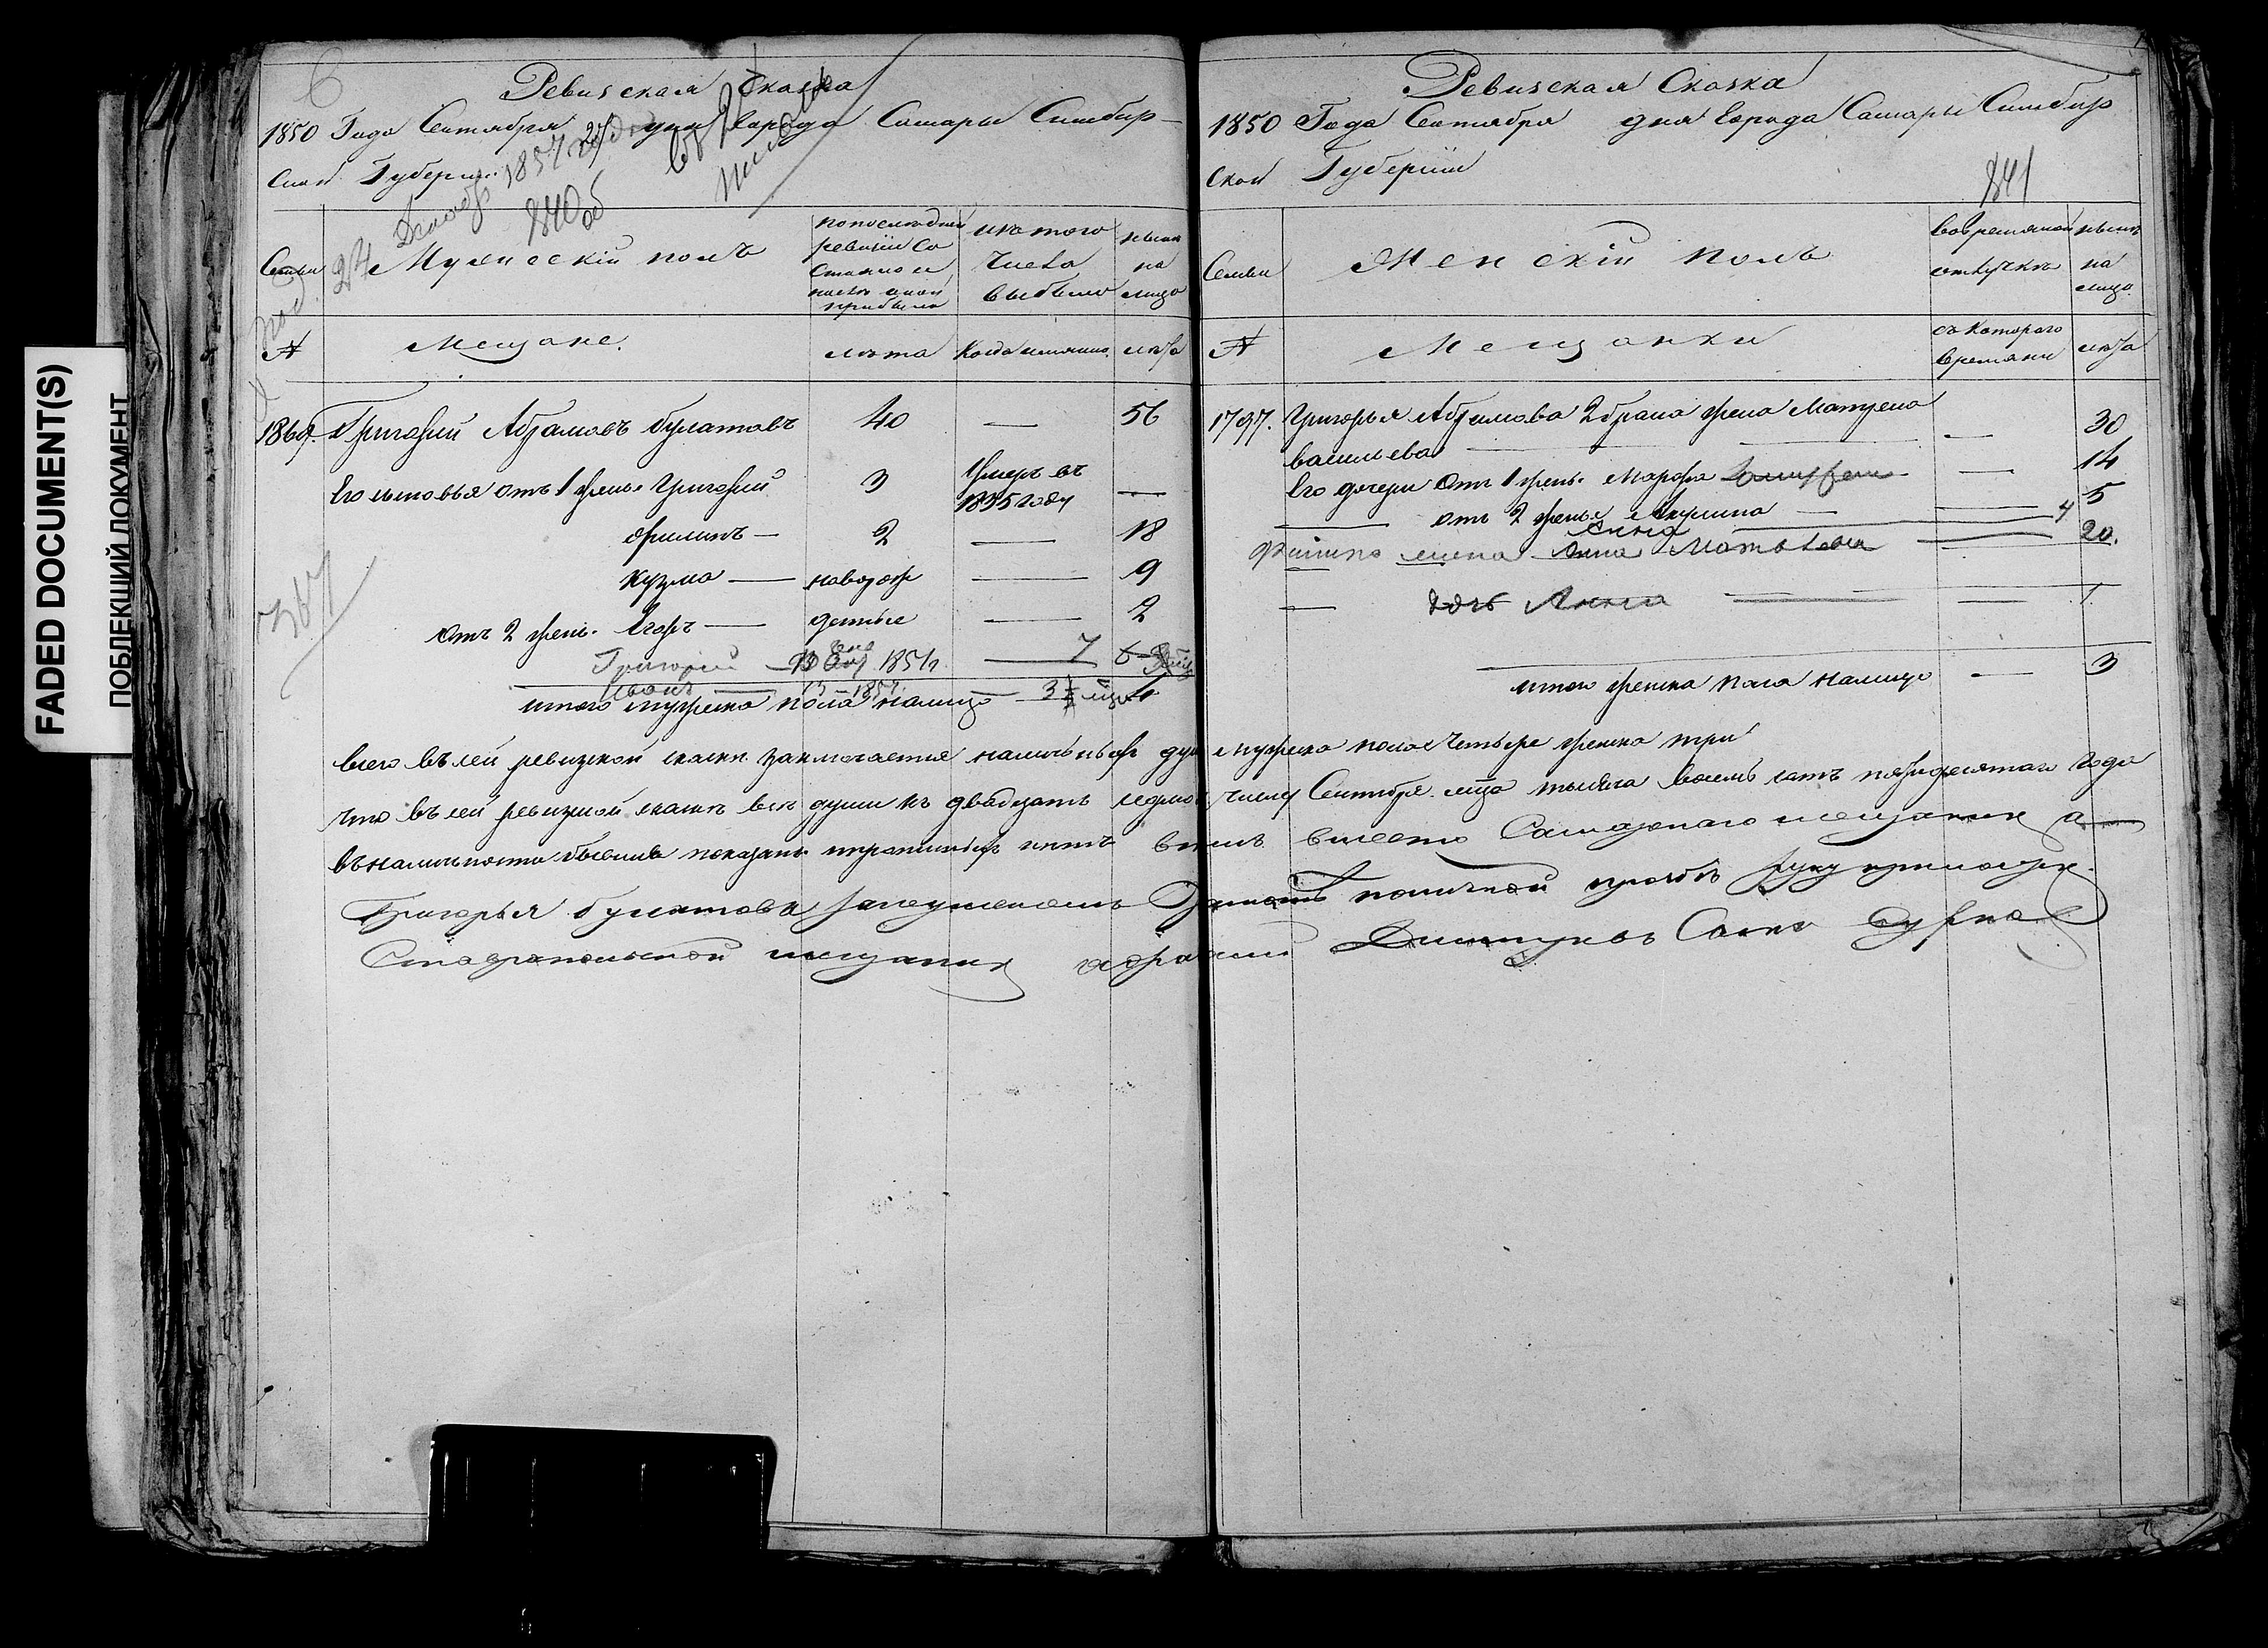 FADED DOCUMENT(S)
ПОБЛЕКШИЙ ДОКУМЕНТ
6
Ревизская Сказка
1850 Года Сентября 27 дня Города Самары Симбир-
ской Губернии
Декабр 1857 года
840 об
Семьи
Мужескiй полъ
попоследней ревизiи состояло и после оной прибыло
изъ того числа выбыло
ныне на лицо
№
Мещане.
лета
Когда имянно.
лета
1869. Григорий Абрамовъ Булатовъ 40 — 56
Его сыновья отъ 1 жены Григорий 3 Умеръ въ 1835 году —
Филипъ — 2 — 18
Кузма — новорож — 9
отъ 2 жены. Егоръ — денные — 2
Григорий 1851 — 7
Иванъ — 13 — 1857
итого мужеска пола налицо 4
367
Ревизская Сказка
1850 Года Сентября дня Города Самары Симбир
ской Губернiи
841
Семьи
Женскiй полъ
во временной отлучке
ныне на лицо.
№
Мещанки
съ которого времяни
лета
1797. Григорья Абрамова 2 брака жена Матрена
Васильева — 30
Его дочери отъ 1 жены. Марфа — 14
отъ 2 жены Акулина — 5
Анна — 4
Филипа жена Анна Матвеева — 20.
дочь Анна — 1
итого женска пола налицо — 3
всего въ сей ревизской сказки заключается наличныхъ душъ мужеска пола четыре женска три
что въ сей ревизской сказке все души къ двадцать седмому числу Сентября м-ца тысяча восемь сотъ пятидесятаго года
въ наличности бывшие показаны и прописныхъ нетъ вместо Самарскаго мещанина
Григорья Булатова за неумениемъ Грамоте по личной прозбе руку приложилъ
Ставропольской мещанинъ